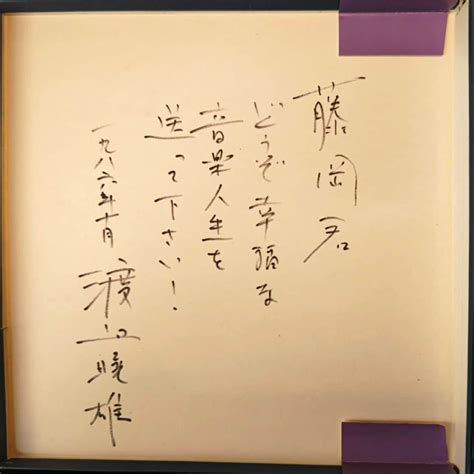 藤岡君
どうぞ幸福な
音楽人生を
送って下さい!
一九八六年十月 渡辺暁雄